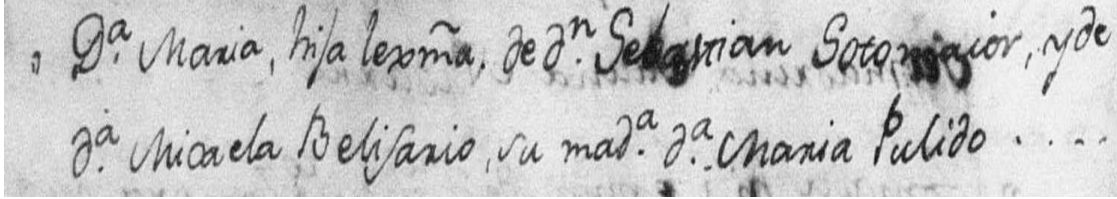 Dª. Maria, hija lexm̃a, de dⁿ. Sebastian Sotomaior, y de
dª. Micaela Belisario, su madª. dª. Maria Pulido . . . .